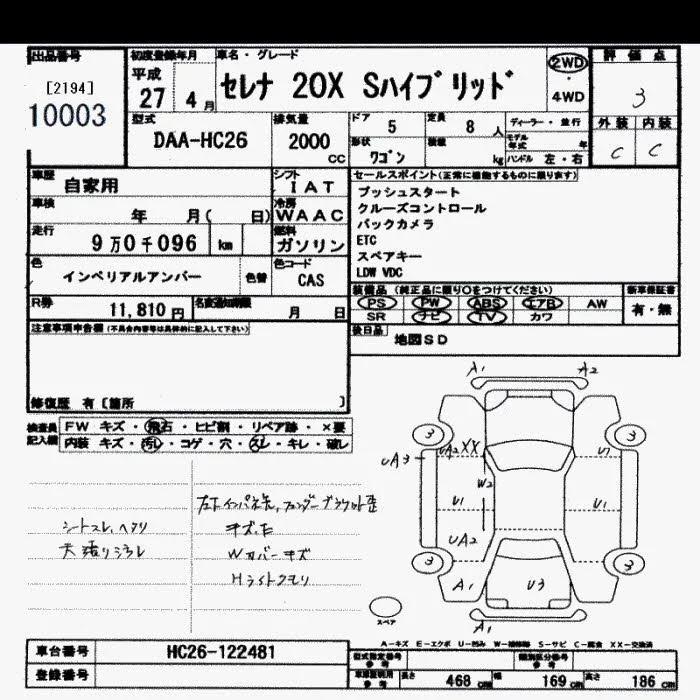 出品番号
[2194]
10003
初度登録年月
平成
27 4 月
車名・グレード
セレナ 20X Sハイブリッド
2WD
・
4WD
評価点
3
外装 内装
C C
型式
DAA-HC26
排気量
2000
CC
ドア 5
定員 8 人
形状
ワゴン
積載 kg
ディーラー・並行
モデル年式 年
ハンドル 左・右
車歴
自家用
シフト
IAT
車検
年 月( 日)
冷房
WAAC
走行
9万0千096 km
燃料
ガソリン
色
インペリアルアンバー
色替
色コード
CAS
R券
11,810 円
名変通知期限
月 日
セールスポイント(正常に機能するものに限ります)
プッシュスタート
クルーズコントロール
バックカメラ
ETC
スペアキー
LDW VDC
装備品(純正品に限り○をつけてください)
PS PW ABS エアB AW
SR ナビ TV カワ
新車保証書
有・無
後日品
地図SD
注意事項申告欄(不具合内容等は具体的に記入して下さい)
修復歴 有〔箇所 〕
検査員記入欄
FW キズ・飛石・ヒビ割・リペア跡・×要
内装 キズ・汚レ・コゲ・穴・スレ・キレ・破レ
シートスレ、ヘタリ
キズ、E
Wカバーキズ
Hライトクモリ
A1 A2
3 3
UA3
UA2 XX
W2
U1 U1
UA2
3 3
A1 U3
A1
スペア
A-キズ E-エクボ U-凹ミ W-補修跡 S-サビ C-腐食 XX-交換済
車台番号
HC26-122481
登録番号
型式指定番号
参考
類別区分番号
参考
車庫証明用
参考
長さ 468 cm
幅 169 cm
高さ 186 cm